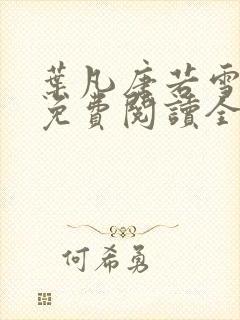 葉凡唐若雪
免費閱讀全
何希勇